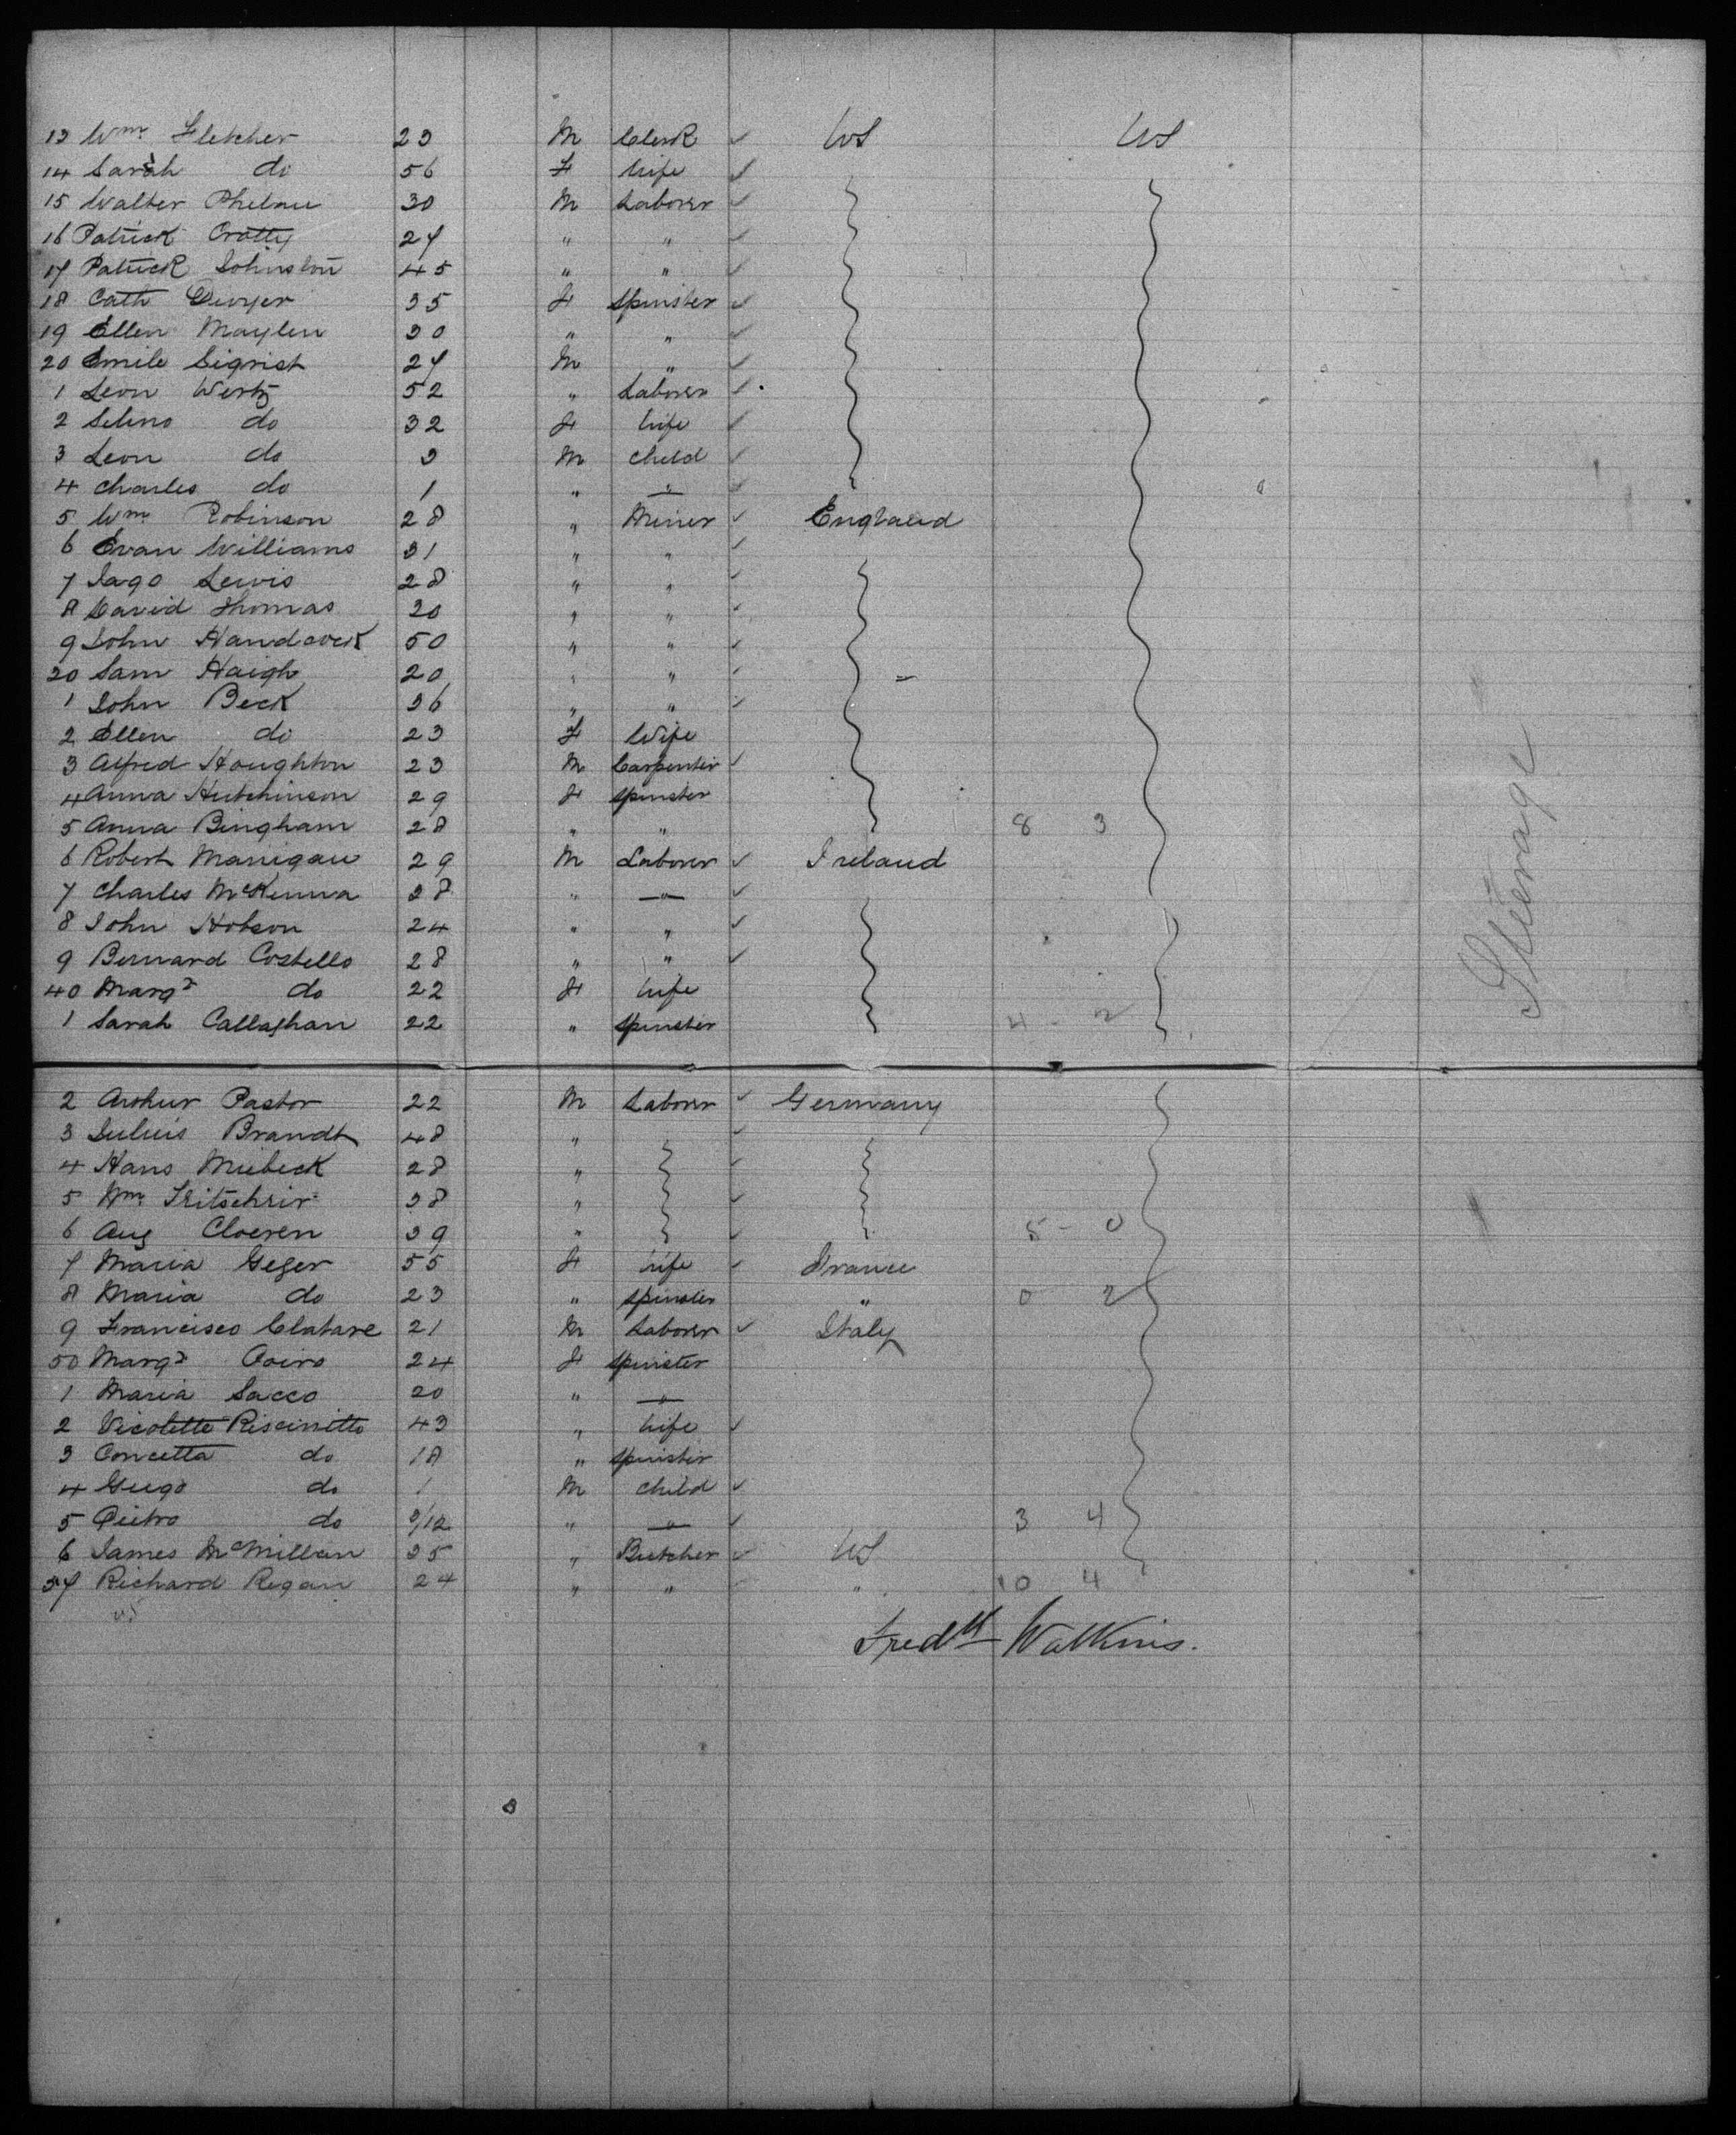 13 Wm Fletcher 23 M Clerk ✓ US US
14 Sarah do 56 F Wife ✓
15 Walter Phelan 30 M Laborer ✓
16 Patrick Cratty 27 " " ✓
17 Patrick Johnston 45 " " ✓
18 Cath Dwyer 35 F Spinster ✓
19 Ellen Maylen 30 " " ✓
20 Emile Sigrist 27 M " ✓
1 Leon Wertz 52 " Laborer ✓
2 Selma do 32 F Wife ✓
3 Leon do 3 M Child ✓
4 Charles do 1 " " ✓
5 Wm Robinson 28 " Miner ✓ England
6 Evan Williams 31 " " ✓
7 Jago Lewis 28 " " ✓
8 David Thomas 20 " " ✓
9 John Handcock 50 " " ✓
30 Sam Haigh 20 " " ✓
1 John Beck 36 " " ✓
2 Ellen do 23 F Wife
3 Alfred Houghton 23 M Carpenter ✓
4 Anna Hutchinson 29 F Spinster
5 Anna Bingham 28 " " 8 3
6 Robert Manigan 29 M Laborer ✓ Ireland
7 Charles McKenna 28 " " ✓
8 John Hobson 24 " " ✓
9 Bernard Costello 28 " " ✓
40 Margt do 22 F Wife
1 Sarah Callaghan 22 " Spinster 4 - 2
Steerage
2 Arthur Pastor 22 M Laborer ✓ Germany
3 Julius Brandt 48 " ✓
4 Hans Miebeck 28 " ✓
5 Wm 38 " ✓
6 Aug Cloeren 39 " ✓ 5 - 0
7 Maria Geger 55 F Wife ✓ France
8 Maria do 23 " Spinster " 0 2
9 Francisco Clatare 21 M Laborer ✓ Italy
50 Margt 24 F Spinster
1 Maria Sacco 20 " "
2 Nicolette 43 " Wife ✓
3 Concetta do 18 " Spinster
4 do 1 M Child ✓
5 Pietro do 3/12 " " ✓ 3 4
6 James McMillan 35 " Butcher ✓ US
57 Richard Regan 24 " " " 10 4
Fredk Watkins.